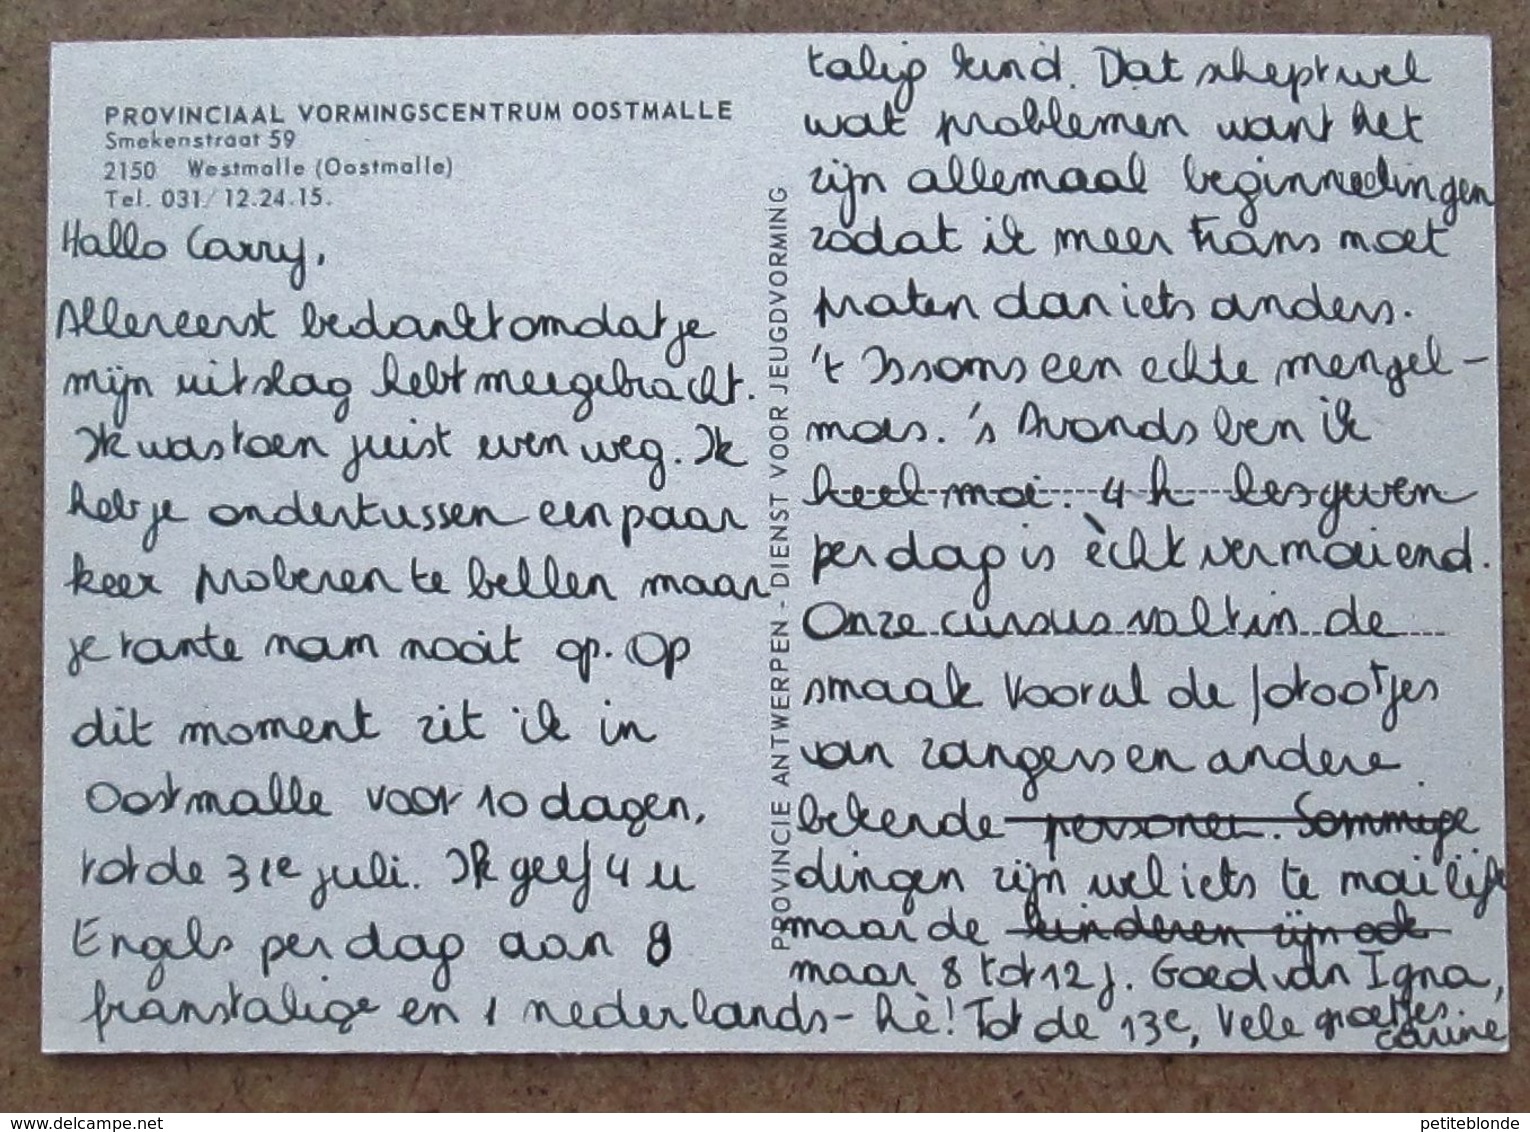 PROVINCIAAL VORMINGSCENTRUM OOSTMALLE
Smekenstraat 59
2150 Westmalle (Oostmalle)
Tel. 031/12.24.15.
Hallo Carry,
Allereerst bedankt omdat je
mijn uitslag hebt meegebracht.
Ik was toen juist even weg. Ik
heb je ondertussen een paar
keer proberen te bellen maar
je tante nam nooit op. Op
dit moment zit ik in
Oostmalle voor 10 dagen,
tot de 31e juli. Ik geef 4 u
Engels per dag aan 8
franstalige en 1 nederlands-
talig kind. Dat shept wel
wat problemen want het
zijn allemaal beginnelingen
zodat ik meer Frans moet
praten dan iets anders.
't Is soms een echte mengel-
moes. 's Avonds ben ik
heel moe. 4 h lesgeven
per dag is ècht vermoeiend.
Onze cursus valt in de
smaak vooral de fotootjes
van zangers en andere
bekende personen. Sommige
dingen zijn wel iets te moeilijk
maar de kinderen zijn ook
maar 8 tot 12 j. Goed van Igna,
hè! Tot de 13e, Vele groetjes.
Carine
PROVINCIE ANTWERPEN - DIENST VOOR JEUGDVORMING
petiteblonde